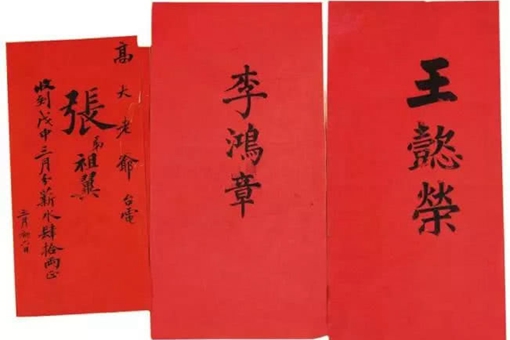 王懿榮
李鴻章
高大老爺台電
張弟祖翼
收到戊申三月分薪水肆拾兩正
三月廿六日